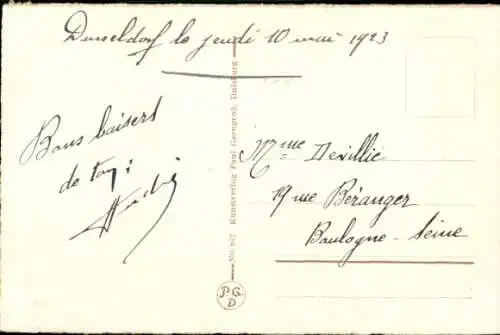 Dusseldorf le jeudi 10 mai 1923
Bons baisers
de ton:
André
No. 847 Kunstverlag Paul Gerngroß, Duisburg
P G
D
Mme Devillie
19 rue Béranger
Boulogne-Seine